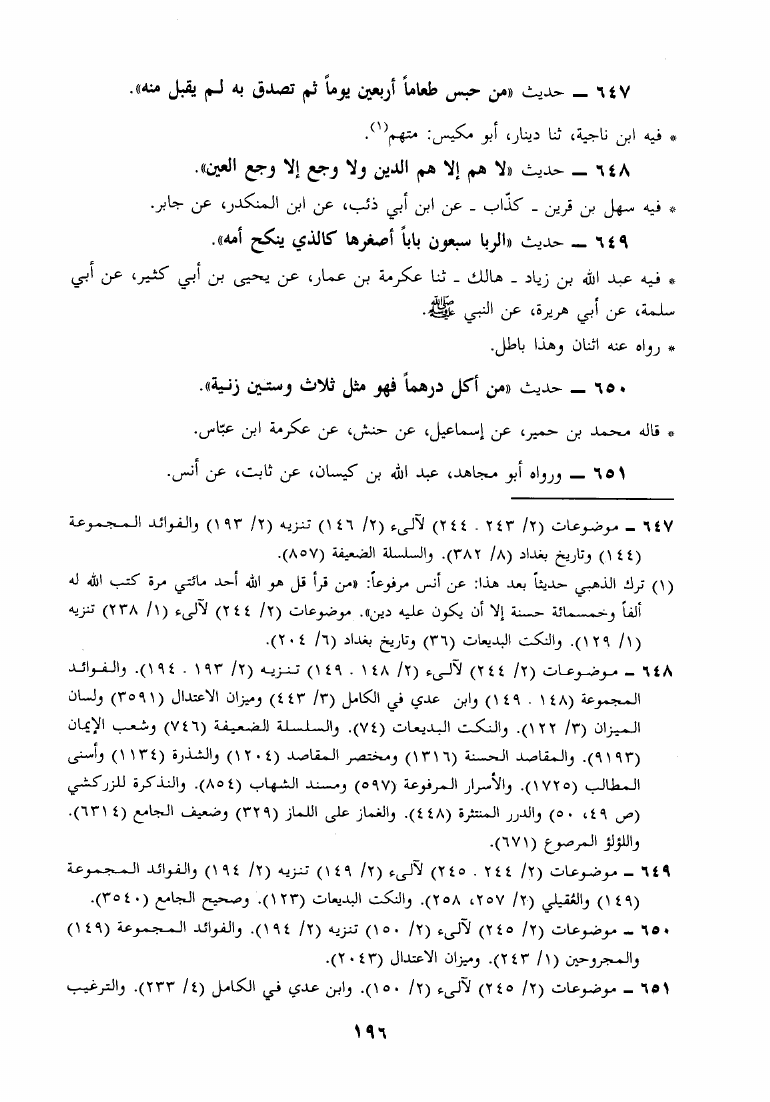 ٦٤٧ ــ حديث «من حبس طعاماً أربعين يوماً ثم تصدق به لـم يقبل منه».
* فيه ابن ناجية، ثنا دينار، أبو مكيس: متهم(١).
٦٤٨ ــ حديث «لا هم إلا هم الدين ولا وجع إلا وجع العين».
* فيه سهل بن قرين ـ كذّاب ـ عن ابن أبي ذئب، عن ابن المنكدر، عن جابر.
٦٤٩ ــ حديث «الربا سبعون باباً أصغرها كالذي ينكح أمه».
* فيه عبد الله بن زياد ـ هالك ـ ثنا عكرمة بن عمار، عن يحيى بن أبي كثير، عن أبي
سلمة، عن أبي هريرة، عن النبي ﷺ.
* رواه عنه اثنان وهذا باطل.
٦٥٠ ــ حديث «من أكل درهماً فهو مثل ثلاث وستين زنية».
* قاله محمد بن حمير، عن إسماعيل، عن حنش، عن عكرمة ابن عبّاس.
٦٥١ ــ ورواه أبو مجاهد، عبد الله بن كيسان، عن ثابت، عن أنس.
٦٤٧ ـ موضوعات (٢/ ٢٤٣ . ٢٤٤) لآلىء (٢/ ١٤٦) تنزيه (٢/ ١٩٣) والفوائد المجموعة
(١٤٤) وتاريخ بغداد (٨/ ٣٨٢). والسلسلة الضعيفة (٨٥٧).
(١) ترك الذهبي حديثاً بعد هذا: عن أنس مرفوعاً: «من قرأ قل هو الله أحد مائتي مرة كتب الله له
ألفاً وخمسمائة حسنة إلا أن يكون عليه دين». موضوعات (٢/ ٢٤٤) لآلىء (١/ ٢٣٨) تنزيه
(١/ ١٢٩). والنكت البديعات (٣٦) وتاريخ بغداد (٦/ ٢٠٤).
٦٤٨ ـ موضوعات (٢/ ٢٤٤) لآلىء (٢/ ١٤٨ . ١٤٩) تنزيه (٢/ ١٩٣ . ١٩٤). والفوائد
المجموعة (١٤٨ . ١٤٩) وابن عدي في الكامل (٣/ ٤٤٣) وميزان الاعتدال (٣٥٩١) ولسان
الميزان (٣/ ١٢٢). والنكت البديعات (٧٤). والسلسلة الضعيفة (٧٤٦) وشعب الإيمان
(٩١٩٣). والمقاصد الحسنة (١٣١٦) ومختصر المقاصد (١٢٠٤) والشذرة (١١٣٤) وأسنى
المطالب (١٧٢٥). والأسرار المرفوعة (٥٩٧) ومسند الشهاب (٨٥٤). والتذكرة للزركشي
(ص ٤٩، ٥٠) والدرر المنتثرة (٤٤٨). والغماز على اللماز (٣٢٩) وضعيف الجامع (٦٣١٤).
واللؤلؤ المرصوع (٦٧١).
٦٤٩ ـ موضوعات (٢/ ٢٤٤ . ٢٤٥) لآلىء (٢/ ١٤٩) تنزيه (٢/ ١٩٤) والفوائد المجموعة
(١٤٩) والعُقيلي (٢/ ٢٥٧، ٢٥٨). والنكت البديعات (١٢٣). وصحيح الجامع (٣٥٤٠).
٦٥٠ ـ موضوعات (٢/ ٢٤٥) لآلىء (٢/ ١٥٠) تنزيه (٢/ ١٩٤). والفوائد المجموعة (١٤٩)
والمجروحين (١/ ٢٤٣). وميزان الاعتدال (٢٠٤٣).
٦٥١ ـ موضوعات (٢/ ٢٤٥) لآلىء (٢/ ١٥٠). وابن عدي في الكامل (٤/ ٢٣٣). والترغيب
١٩٦